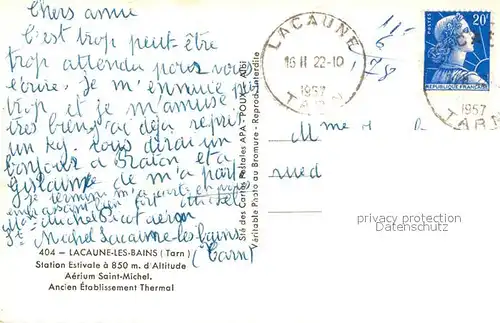 Chers amie
C'est trop peut-être
trop attendu pour vous
écrire. Je m'ennuie pas
trop et je m'amuse
très bien, ai déjà repris
un kg. Vous dirai un
bonjour a et a
Guislaine de m'a part
je termine en vous
embrassant bien fort Michel
Aerium
St Michel Lacaune-les-bains
(Tarn)
404 — LACAUNE-LES-BAINS (Tarn)
Station Estivale à 850 m. d'Altitude
Aérium Saint-Michel.
Ancien Établissement Thermal
Sté des Cartes Postales APA - POUX - Albi
Véritable Photo au Bromure - Reprod. Interdite
LACAUNE
16-II 22-10
1957
TARN
POSTES
20F
RÉPUBLIQUE FRANÇAISE
1957
TARN
M
rued
privacy protection
VDMedien24.de